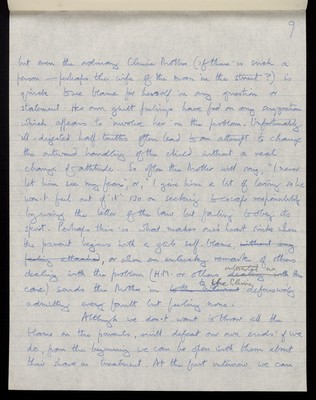 9
but even the ordinary Clinic Mother (if there is such a
person — perhaps the wife of the man in the street?) is
quick to see blame for herself in any question or
statement. Her own guilt feelings have fed on any suggestion
which appears to involve her in the problem. Unfortunately
ill-digested half truths often lead to an attempt to change
the outward handling of the child without a real
change of attitude. So often the Mother will say, "I never
let him see my fears, or, "I give him a lot of loving so he
won't feel out of it" so seeking to escape responsibility
by using the letter of the law but failing to obey its
spirit. Perhaps this is what makes one's heart sink when
the parent begins with a glib self-blame, without any
, or when an unlucky remark of others
dealing with the problem (H.M. or others interested in the
case) sends the Mother to the Clinic, defensively
admitting every fault but feeling none.
Although we don't want to throw all the
blame on the parents, we'll defeat our own ends if we
do, from the beginning we can be open with them about
their share in treatment. At the first interview we can